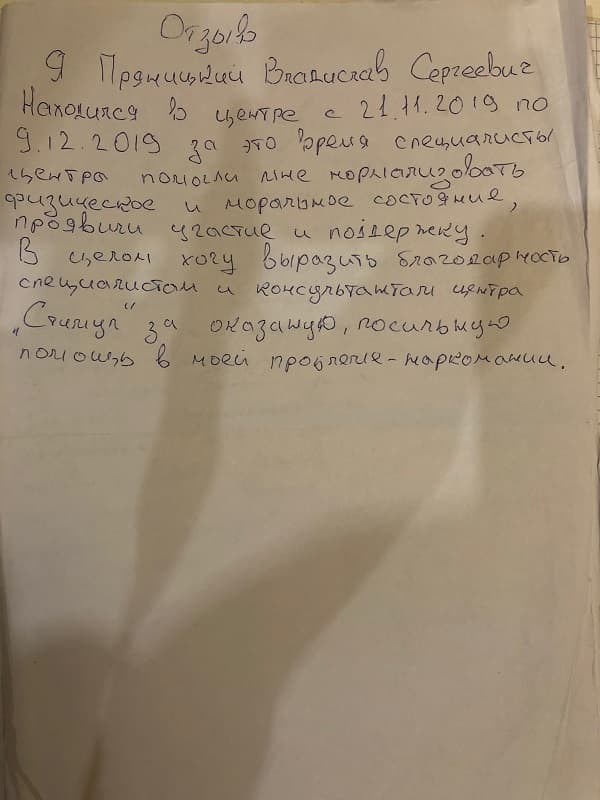 Отзыв
Я Пряницкий Владислав Сергеевич
Находился в центре с 21.11.2019 по
9.12.2019 за это время специалисты
центра помогли мне нормализовать
физическое и моральное состояние,
проявили участие и поддержку.
В целом хочу выразить благодарность
специалистам и консультантам центра
„Стимул" за оказаную, посильную
помощь в моей проблеме-наркомании.